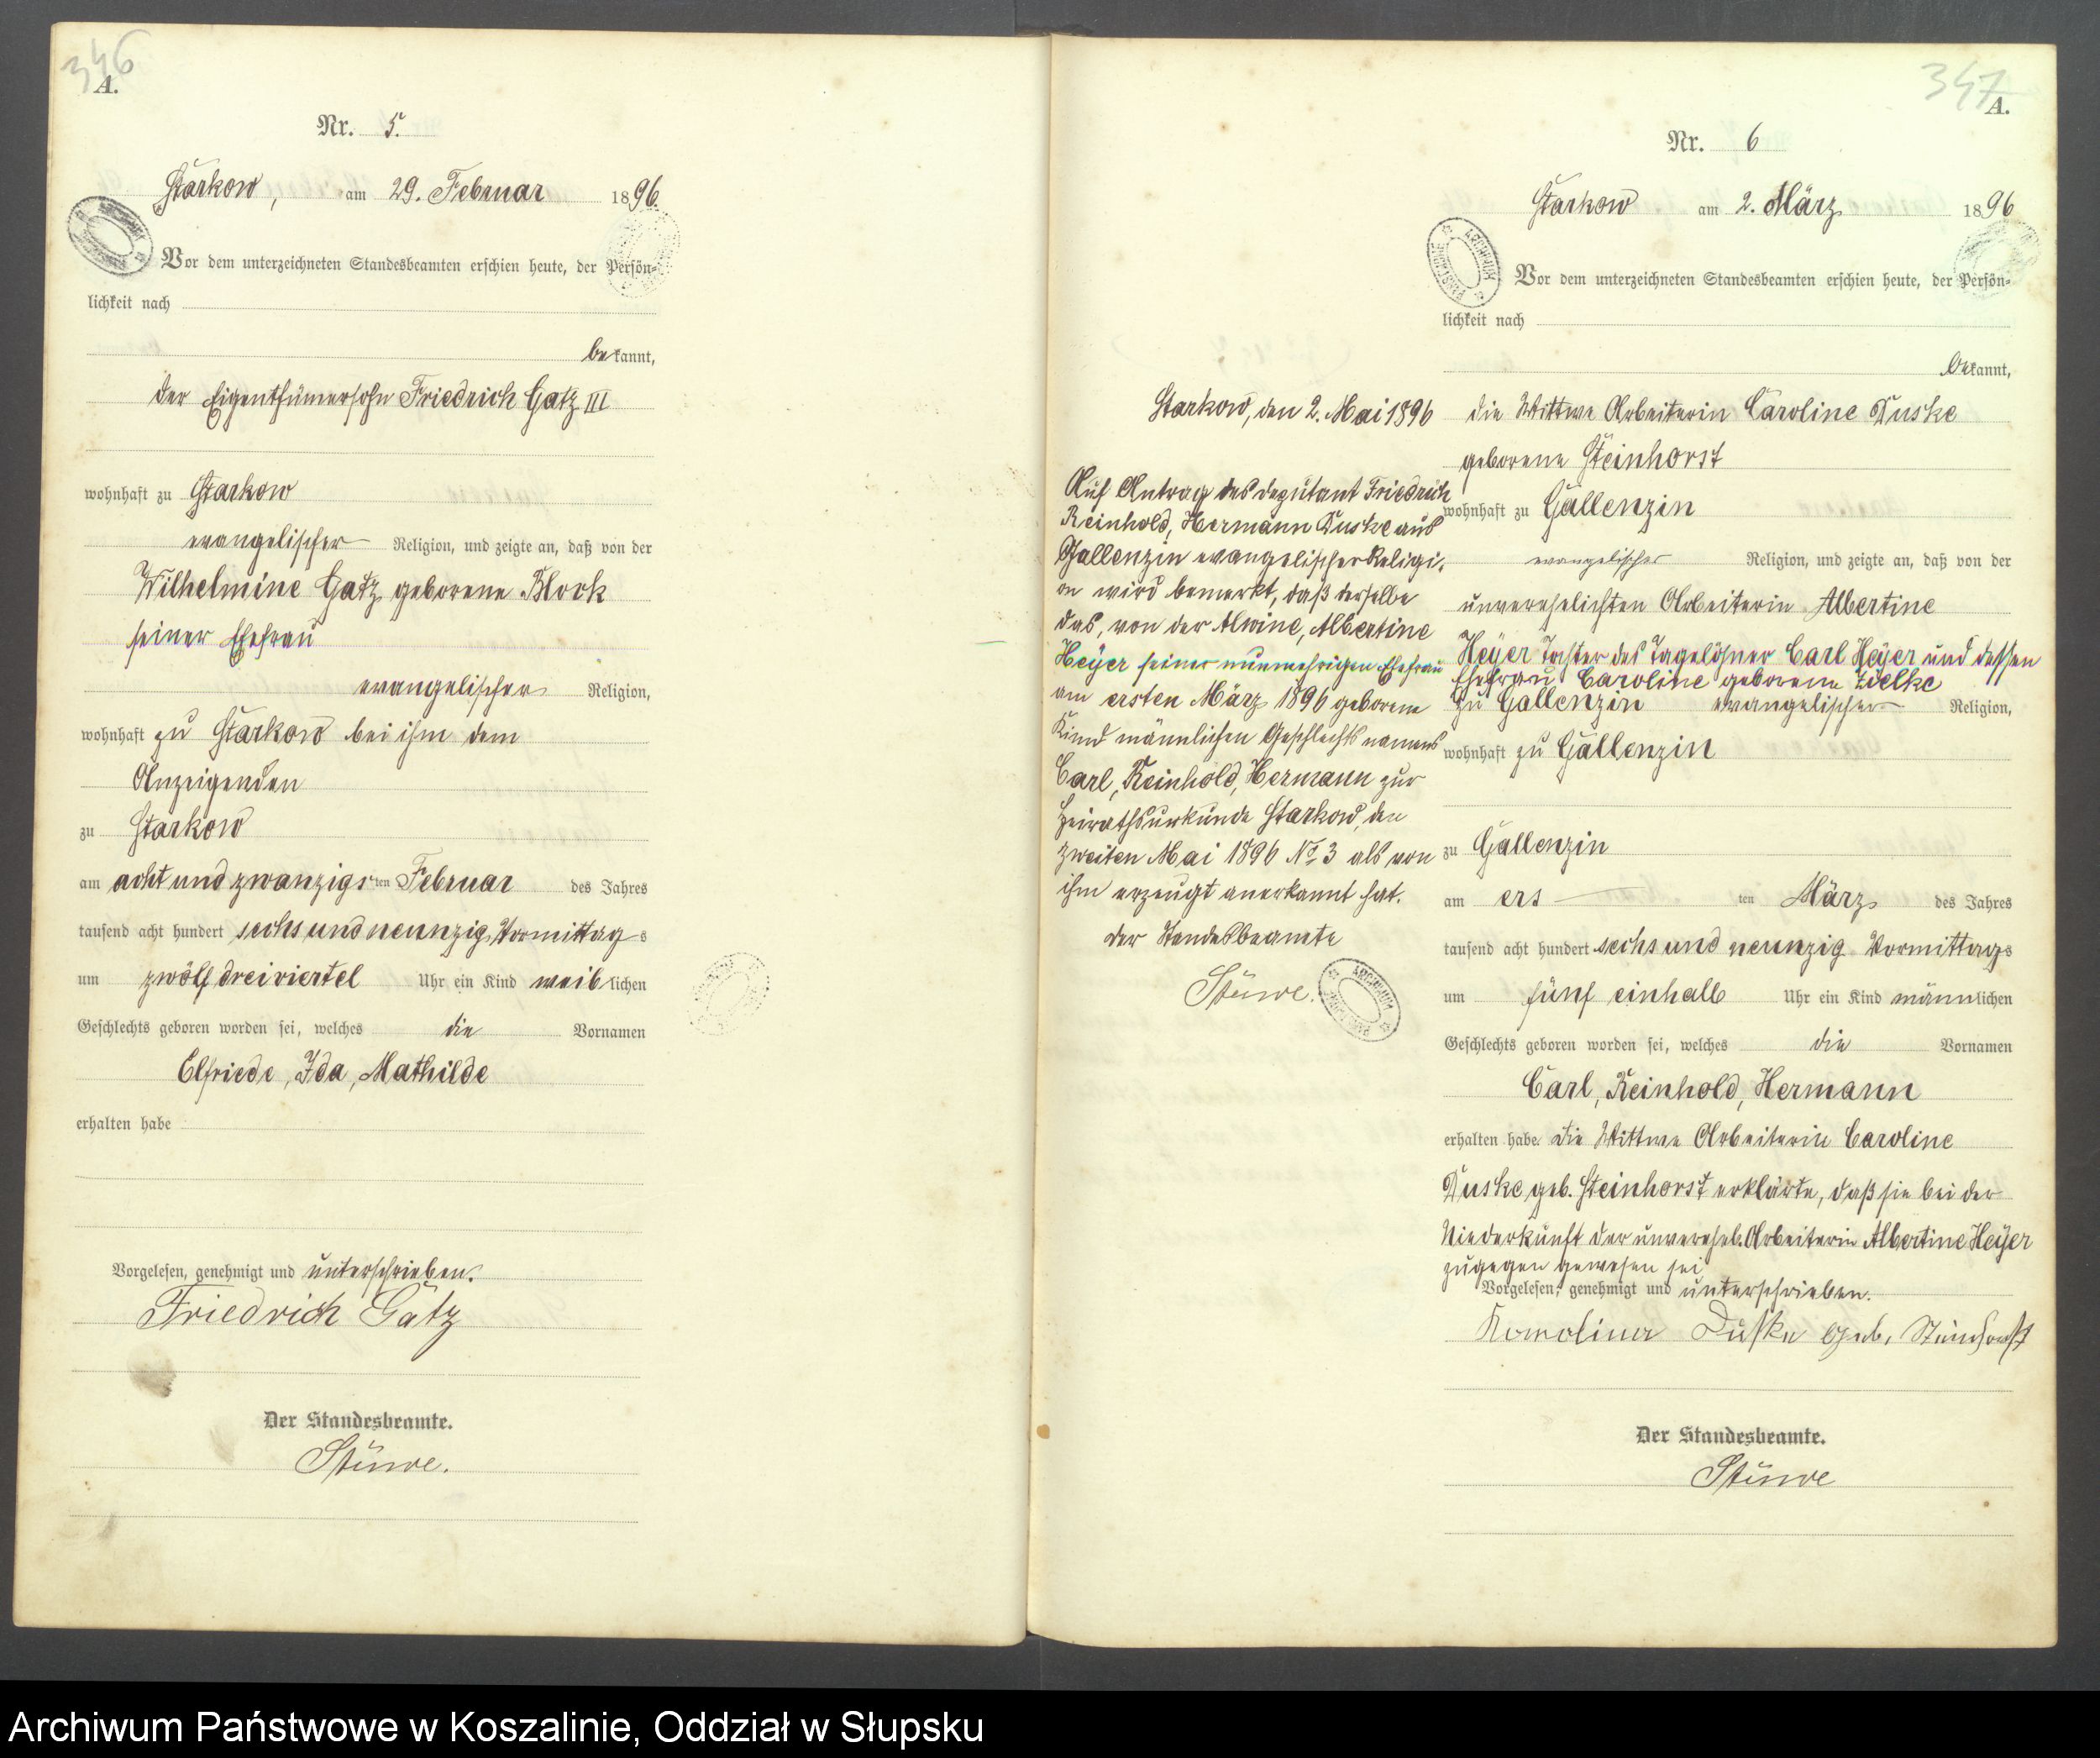 346
A.
Nr. 5.
Starkow, am 29. Februar 1896.
Vor dem unterzeichneten Standesbeamten erschien heute, der Persön-
lichkeit nach
bekannt,
der Eigenthümersohn Friedrich Gatz III
wohnhaft zu Starkow
evangelischer Religion, und zeigte an, daß von der
Wilhelmine Gatz geborene Block
seiner Ehefrau
evangelischer Religion,
wohnhaft zu Starkow bei ihm dem
Anzeigenden
zu Starkow
am acht und zwanzigsten Februar des Jahres
tausend acht hundert sechs und neunzig Vormittags
um zwölf dreiviertel Uhr ein Kind weiblichen
Geschlechts geboren worden sei, welches die Vornamen
Elfriede, Ida, Mathilde
erhalten habe
Vorgelesen, genehmigt und unterschrieben.
Friedrich Gatz
Der Standesbeamte.
Stüwe.
347
A.
Nr. 6
Starkow am 2. März 1896
Vor dem unterzeichneten Standesbeamten erschien heute, der Persön-
lichkeit nach
bekannt,
die Wittwe Arbeiterin Caroline Duske
geborene Steinhorst
wohnhaft zu Gallenzin
evangelischer Religion, und zeigte an, daß von der
unverehelichten Arbeiterin Albertine
Heÿer Tochter des Tagelöhner Carl Heÿer und dessen
Ehefrau Caroline geborene Zielke
zu Gallenzin evangelischer Religion,
wohnhaft zu Gallenzin
zu Gallenzin
am ersten März des Jahres
tausend acht hundert sechs und neunzig Vormittags
um fünf einhalb Uhr ein Kind männlichen
Geschlechts geboren worden sei, welches die Vornamen
Carl, Reinhold, Hermann
erhalten habe. Die Wittwe Arbeiterin Caroline
Duske geb. Steinhorst erklärte, daß sie bei der
Niederkunft der unvereh. Arbeiterin Albertine Heÿer
zugegen gewesen sei
Vorgelesen, genehmigt und unterschrieben.
Karoline Duske geb. Steinhorst
Der Standesbeamte.
Stüwe
Starkow, den 2. Mai 1896
Auf Antrag des Deputant Friedrich
Reinhold, Hermann Duske aus
Gallenzin evangelischer Religi-
on wird bemerkt, daß derselbe
das, von der Alwine, Albertine
Heÿer seiner nunmehrigen Ehefrau
am ersten März 1896 geborene
Kind männlichen Geschlechts namens
Carl, Reinhold, Hermann zur
Heirathsurkunde Starkow, den
zweiten Mai 1896 No 3 als von
ihm erzeugt anerkannt hat.
Der Standesbeamte
Stüwe.
Archiwum Państwowe w Koszalinie, Oddział w Słupsku